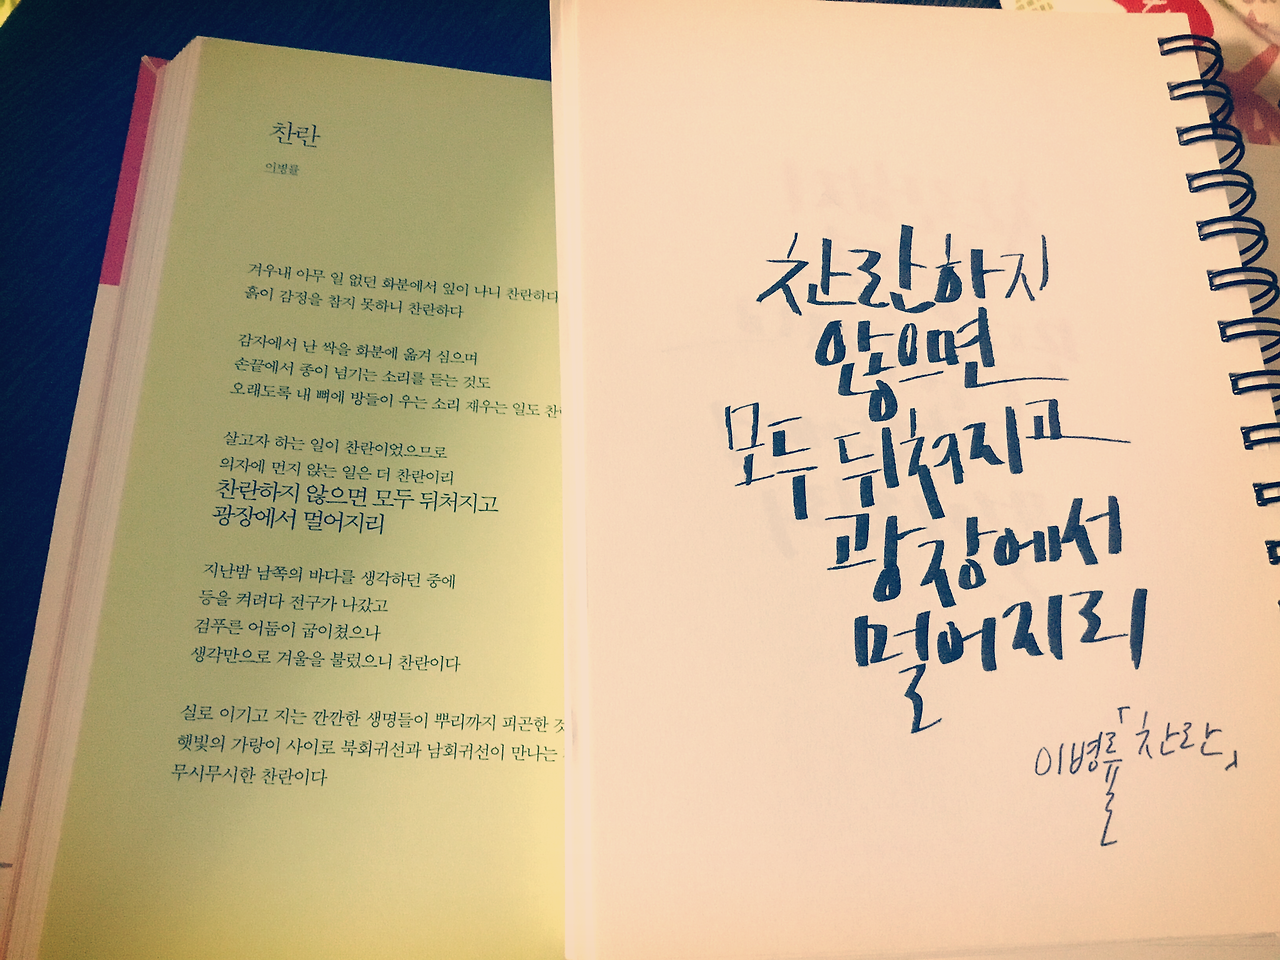 찬란
이병률
겨우내 아무 일 없던 화분에서 잎이 나니 찬란하다
흙이 감정을 참지 못하니 찬란하다
감자에서 난 싹을 화분에 옮겨 심으며
손끝에서 종이 넘기는 소리를 듣는 것도
오래도록 내 뼈에 방들이 우는 소리 재우는 일도 찬
살고자 하는 일이 찬란이었으므로
의자에 먼지 앉는 일은 더 찬란이리
찬란하지 않으면 모두 뒤처지고
광장에서 멀어지리
지난밤 남쪽의 바다를 생각하던 중에
등을 켜려다 전구가 나갔고
검푸른 어둠이 굽이쳤으나
생각만으로 겨울을 불렀으니 찬란이다
실로 이기고 지는 깐깐한 생명들이 뿌리까지 피곤한 것
햇빛의 가랑이 사이로 북회귀선과 남회귀선이 만나는
무시무시한 찬란이다
찬란하지
않으면
모두 뒤처지고
광장에서
멀어지리
이병률「찬란」